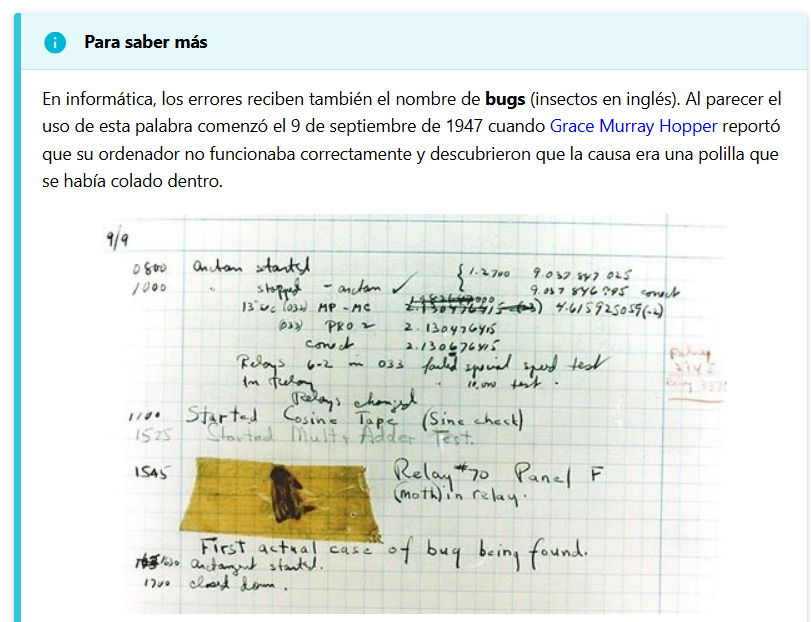 Para saber más
En informática, los errores reciben también el nombre de bugs (insectos en inglés). Al parecer el
uso de esta palabra comenzó el 9 de septiembre de 1947 cuando Grace Murray Hopper reportó
que su ordenador no funcionaba correctamente y descubrieron que la causa era una polilla que
se había colado dentro.
9/9
0800 Antan started
1000 " stopped - antan ✓ { 1.2700 9.037 847 025
9.037 846 995 correct
13"UC (032) MP - MC 2.130476415 (-3) 4.615925059(-2)
(033) PRO 2 2.130476415
correct 2.130676415
Relays 6-2 in 033 failed special speed test
In Relay " 10,000 test .
Relays changed
1100 Started Cosine Tape (Sine check)
1525 Started Mult + Adder Test.
1545 Relay #70 Panel F
(moth) in relay.
First actual case of bug being found.
1630 antangent started.
1700 closed down .